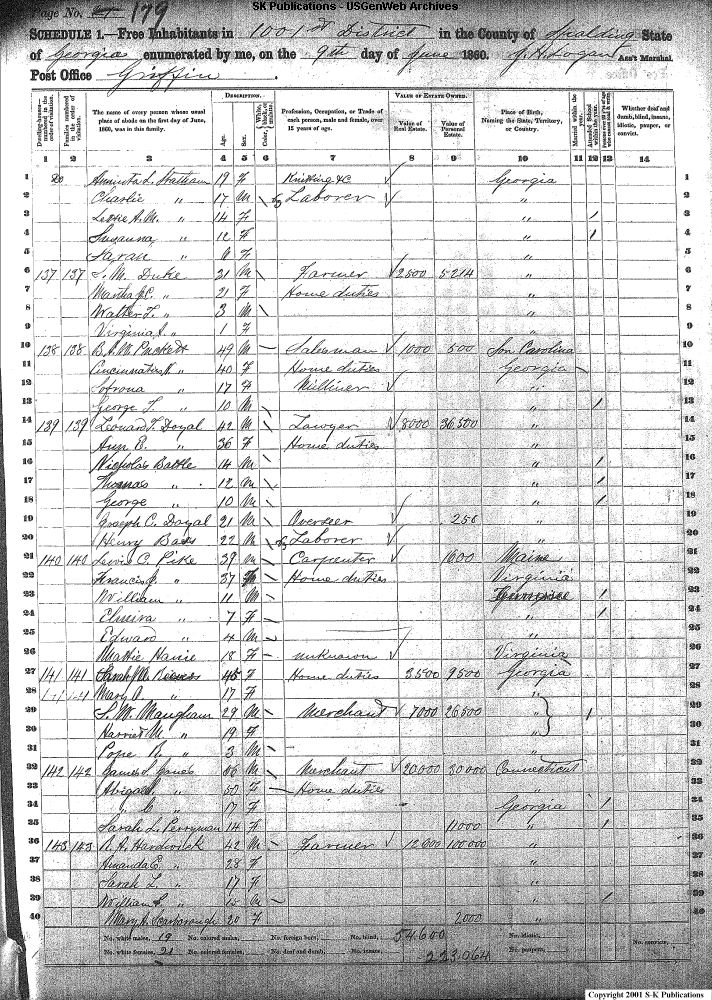 SK Publications - USGenWeb Archives
Page No. 179
SCHEDULE 1.—Free Inhabitants in 1001st District in the County of Spalding State
of Georgia enumerated by me, on the 9th day of June 1860. J. H. Logan Ass't Marshal.
Post Office Griffin.
DESCRIPTION. VALUE OF ESTATE OWNED.
Dwelling-houses—numbered in the order of visitation. Families numbered in the order of visitation. The name of every person whose usual place of abode on the first day of June, 1860, was in this family. Age. Sex. Color. Profession, Occupation, or Trade of each person, male and female, over 15 years of age. Value of Real Estate. Value of Personal Estate. Place of Birth, Naming the State, Territory, or Country. Married within the year. Attended School within the year. Whether deaf and dumb, blind, insane, idiotic, pauper, or convict.
1 2 3 4 5 6 7 8 9 10 11 12 13 14
1 Statham 19 F Knitting &c Georgia 1
2 Charlie " 17 M Laborer " 2
3 " 14 F " / 3
4 Susanna " 12 F " / 4
5 Sarah " 6 F " 5
6 137 137 Duke 31 M Farmer 2500 5214 " 6
7 Martha C. " 21 F Home duties " 7
8 Walter T. " 3 M " 8
9 Virginia " 1 F " 9
10 138 138 B. A. M. Puckett 49 M Salesman 1000 500 Son Carolina 10
11 Cincinnatti " 40 F Home duties Georgia 11
12 " 17 F Milliner " 12
13 George T. " 10 M " / 13
14 139 139 Leonard T. Doyal 42 M Lawyer 8000 36,500 " 14
15 Ann E. " 36 F Home duties " 15
16 Nicholas Battle 14 M " / 16
17 Thomas " 12 M " / 17
18 George " 10 M " / 18
19 Joseph C. Doyal 21 M Overseer 250 " 19
20 Henry Bass 22 M Laborer " 20
21 140 140 Lewis C. Pike 39 M Carpenter 1600 Maine 21
22 Francis " 37 Home duties Virginia 22
23 William " 11 M / 23
24 Elmira " 7 F " / 24
25 Edward " 4 M " 25
26 Mattie 18 F unknown Virginia 26
27 141 141 Sarah Reeves 45 F Home duties 3,500 9500 Georgia 27
28 Mary A. " 17 F " 28
29 S. W. Maugham 29 M Merchant 7000 26,500 " 29
30 Harriet M. " 19 F " 30
31 Pope R. " 3 M " 31
32 142 142 James S. Jones 56 M Merchant 20,000 30,000 Connecticut 32
33 Abigail " 50 F Home duties " 33
34 " 17 F Georgia / 34
35 Sarah L. Perryman 14 F 11000 " / 35
36 143 143 R. A. Hardwick 42 M Farmer 12,600 100,000 " 36
37 Amanda C. " 28 F " 37
38 Sarah L. " 17 F " 38
39 William " 15 M " / 39
40 Mary A. Scarborough 20 F 2,000 " 40
No. white males, 19 No. colored males, No. foreign born, No. blind, 54,600 No. idiotic, No. convicts,
No. white females, 21 No. colored females, No. deaf and dumb, No. insane, 223,064 No. paupers,
Copyright 2001 S-K Publications